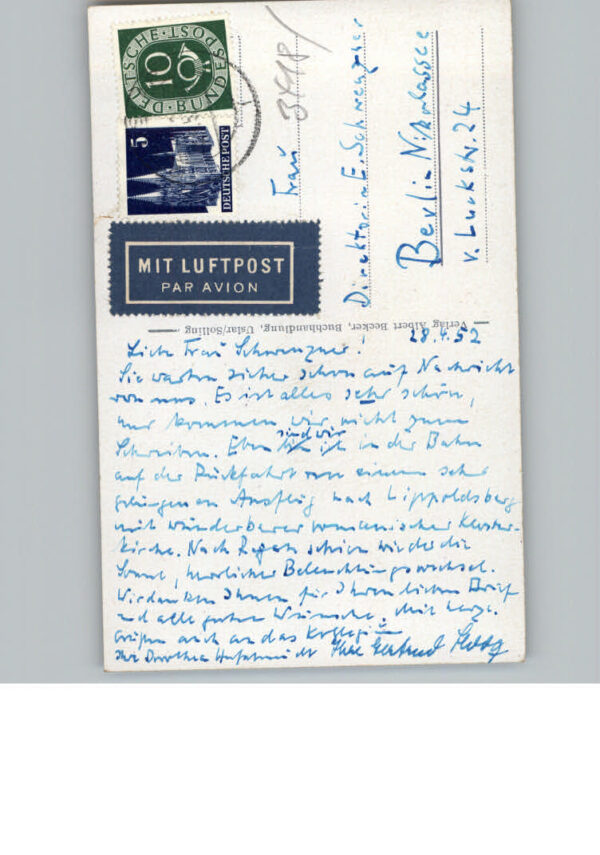 DEUTSCHE BUNDESPOST
10
5
DEUTSCHE POST
MIT LUFTPOST
PAR AVION
3118/
Frau
Direktorin E. Schwenzner
Berlin-Nikolassee
v. Luckstr. 24
Verlag Albert Becker, Buchhandlung, Uslar/Solling
28.4.52
Liebe Frau Schwenzner!
Sie warten sicher schon auf Nachricht
von uns. Es ist alles sehr schön,
nur kommen wir nicht zum
Schreiben. Eben sind wir in der Bahn
auf der Rückfahrt von einem sehr
gelungenen Ausflug nach Lippoldsberg
mit wunderbarer romanischer Kloster-
kirche. Nach Regen schien wieder die
Sonne, herrlicher Beleuchtungswechsel.
Wir danken Ihnen für Ihren lieben Brief
und alle guten Wünsche. Mit herzl.
Grüßen auch an das Kollegium
Ihre Dorothea Ihre Gertrud